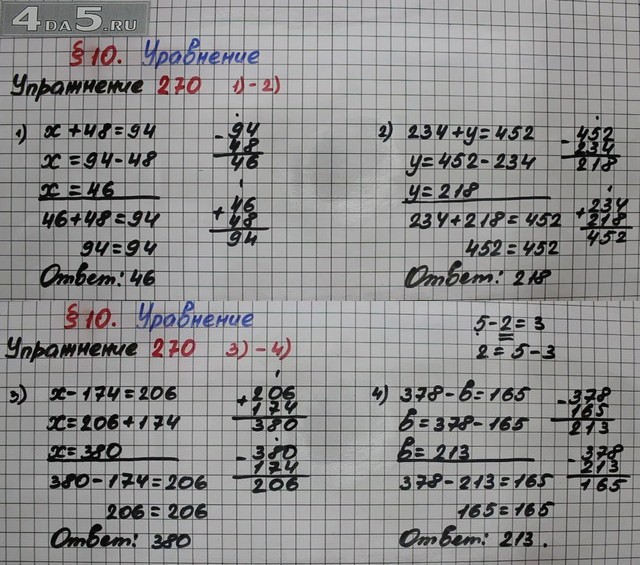 4DA5.RU
§10. Уравнение
Упражнение 270 1)-2)
1) x+48=94
x=94-48
x=46
46+48=94
94=94
Ответ: 46
-94
48
46
+46
48
94
2) 234+y=452
y=452-234
y=218
234+218=452
452=452
Ответ: 218
-452
234
218
+234
218
452
§10. Уравнение
Упражнение 270 3)-4)
5-2=3
2=5-3
3) x-174=206
x=206+174
x=380
380-174=206
206=206
Ответ: 380
+206
174
380
-380
174
206
4) 378-b=165
b=378-165
b=213
378-213=165
165=165
Ответ: 213.
-378
165
213
-378
213
165